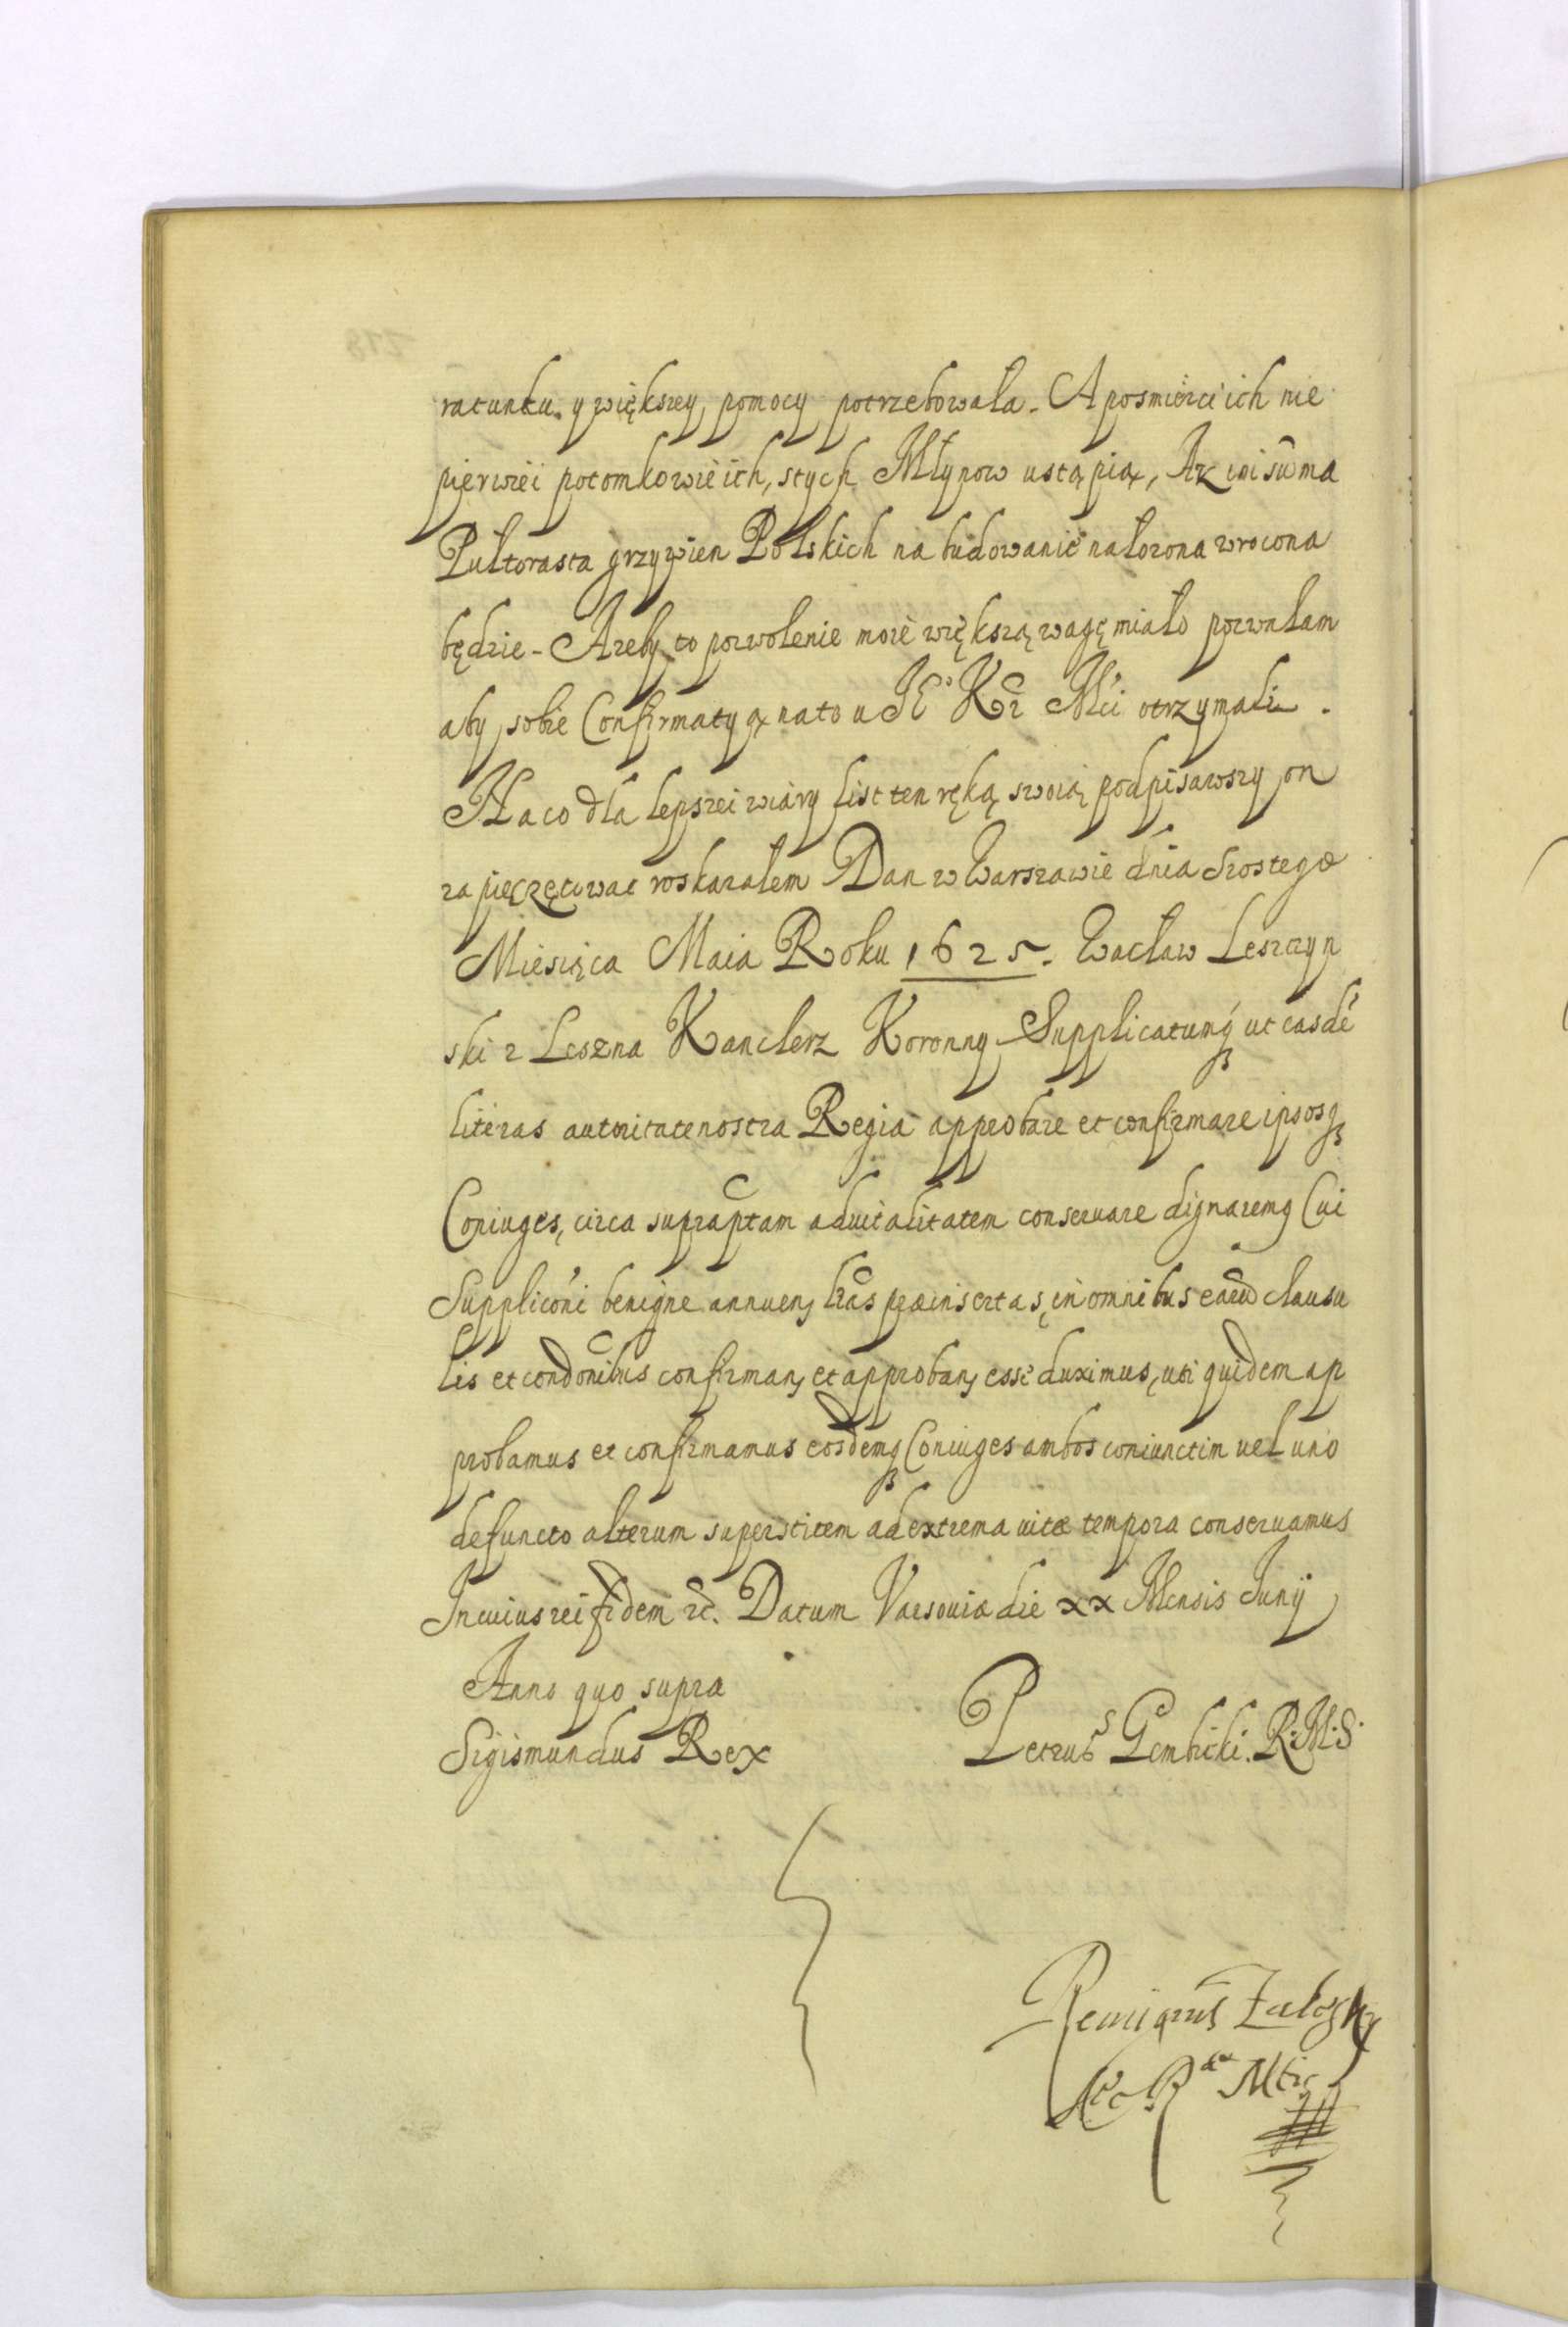 ratunku y większey pomocy potrzebowała. A posmierci ich nie
pierwiei potomkowie ich, stych Młynow ustąpią, Az im sūma
Pułtorasta grzywien Polskich na budowanie nałozona wrocona
będzie - Azeby to pozwolenie moie większą wagę miało pozwalam
aby sobie Confirmatyą nato u JE° Kr Mći otrzymali.
Na co dla lepszei wiary List ten ręką swoią podpisawszy on
zapięczętowac roskazałem Dan w Warszawie dnia Szostego
Miesiąca Maia Roku 1625. Wacław Leszczyn
ski z Leszna Kanclerz Koronny Supplicatumq ut easdē
literas autoritate nostra Regia approbare et confirmare ipsosq
Coniuges, circa supraptam aduitalitatem conseruare dignaremq Cui
Suppliconi benigne annuen, lras praeinsertas, in omnibus earū clausu
lis et condonibus confirman, et approban, esse duximus, uti quidem ap
probamus et confirmamus eosdemq Coniuges ambos coniunctim uel uno
defuncto alterum superstitem ad extrema uitæ tempora conseruamus
In cuius rei fidem rć. Datum Varsouiæ die xx Mensis Junij
Anno quo supra
Sigismundus Rex Petrus Gembicki. R. M. S.
Remigius Załoski